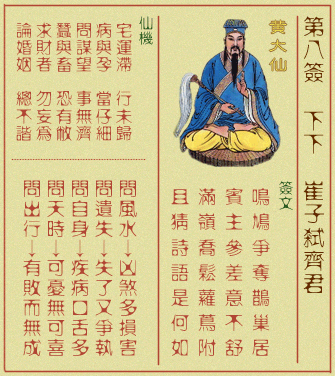 第八簽 下下 崔子弑齊君
黄大仙
簽文
鳴鳩爭奪鵲巢居
賓主參差意不舒
滿嶺喬鬆蘿蔦附
且猜詩語是何如
仙機
宅運滯 行未歸
病與孕 當仔細
問謀望 事無濟
蠶與畜 恐有敝
求財者 勿妄爲
論婚姻 總不諧
問風水→凶煞多損害
問遺失→失了又爭執
問自身→疾病口舌多
問天時→可憂無可喜
問出行→有敗而無成